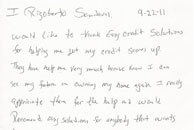 I Rigoberto Sandoval 9-22-11
would like to thank Easy credit Solutions
for helping me get my credit scores up.
They have help me very much hence know I am
see my future in owning my home again I really
appreciate them for the help and would
Recommend any solutions for anybody that wants